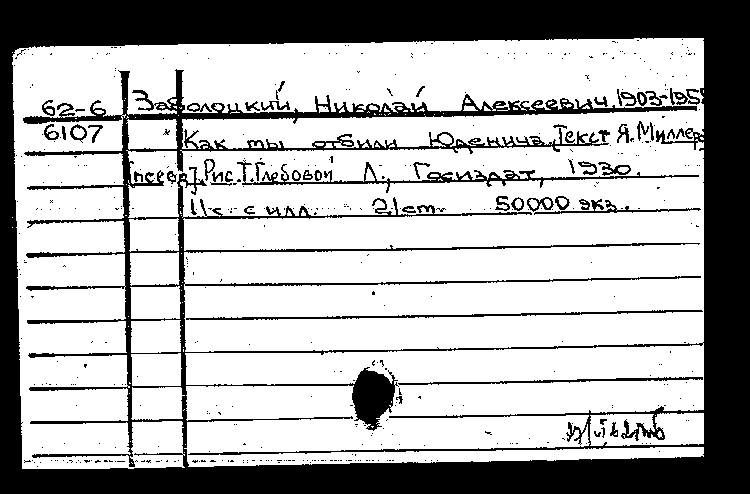 62-6 Заболоцкий, Николай Алексеевич, 1903-195
6107 Как мы отбили Юденича. Текст Я. Миллер
[псевд]. Рис. Т. Глебовой Л., Госиздат, 1930.
11 с. с илл. 21 cm. 50000 экз.